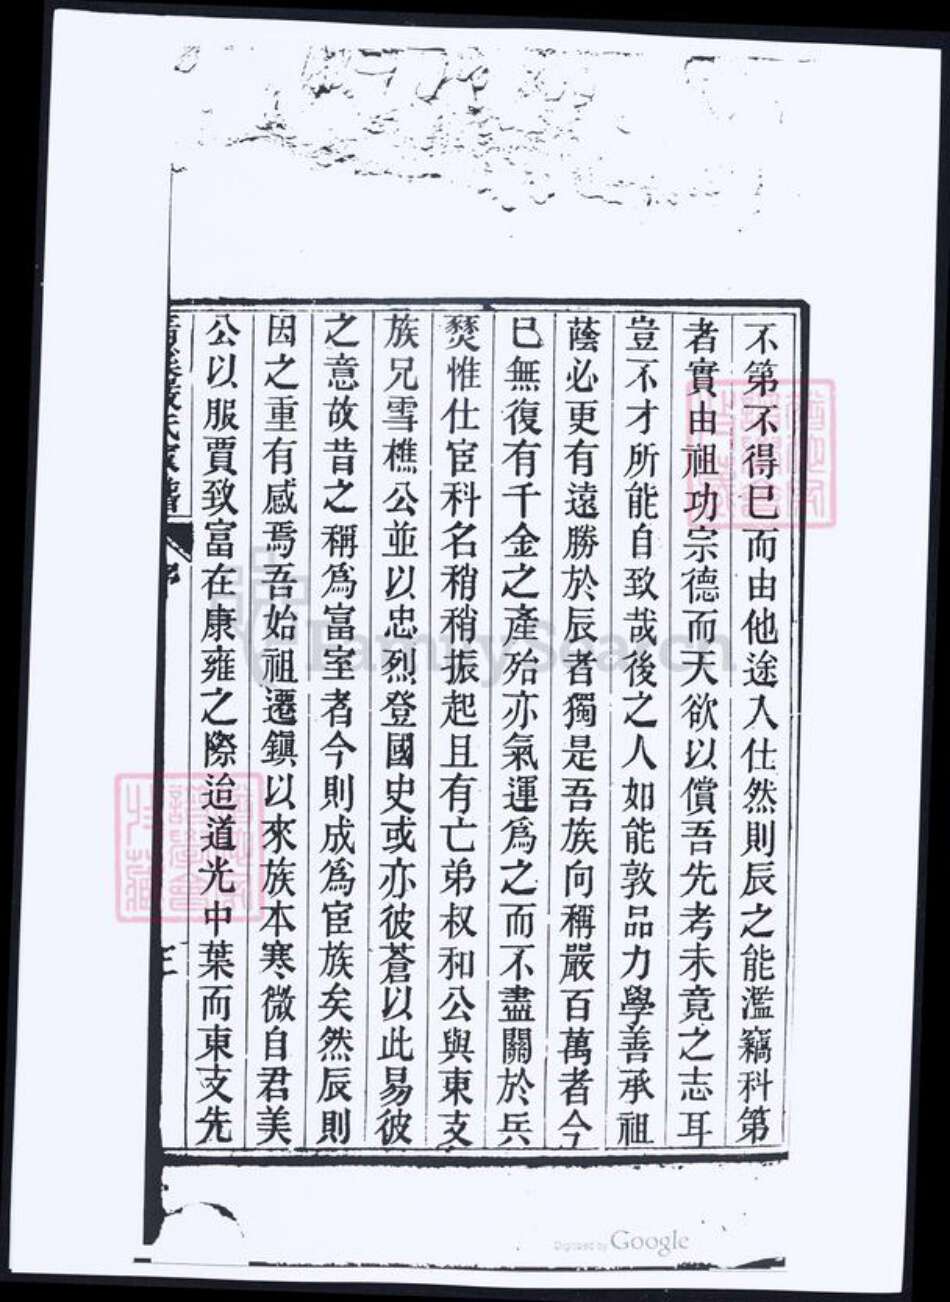 不第不得已而由他途入仕然則辰之能濫竊科第
者實由祖功宗德而天欲以償吾先考未竟之志耳
豈不才所能自致哉後之人如能敦品力學善承祖
蔭必更有遠勝於辰者獨是吾族向稱嚴百萬者今
已無復有千金之產殆亦氣運爲之而不盡關於兵
燹惟仕宦科名稍稍振起且有亡弟叔和公與東支
族兄雪樵公並以忠烈登國史或亦彼蒼以此易彼
之意故昔之稱爲富室者今則成爲宦族矣然辰則
因之重有感焉吾始祖遷鎭以來族本寒微自君美
公以服賈致富在康雍之際迨道光中葉而東支先
嚴氏家譜
序
三
FamilySearch
Digitized by Google